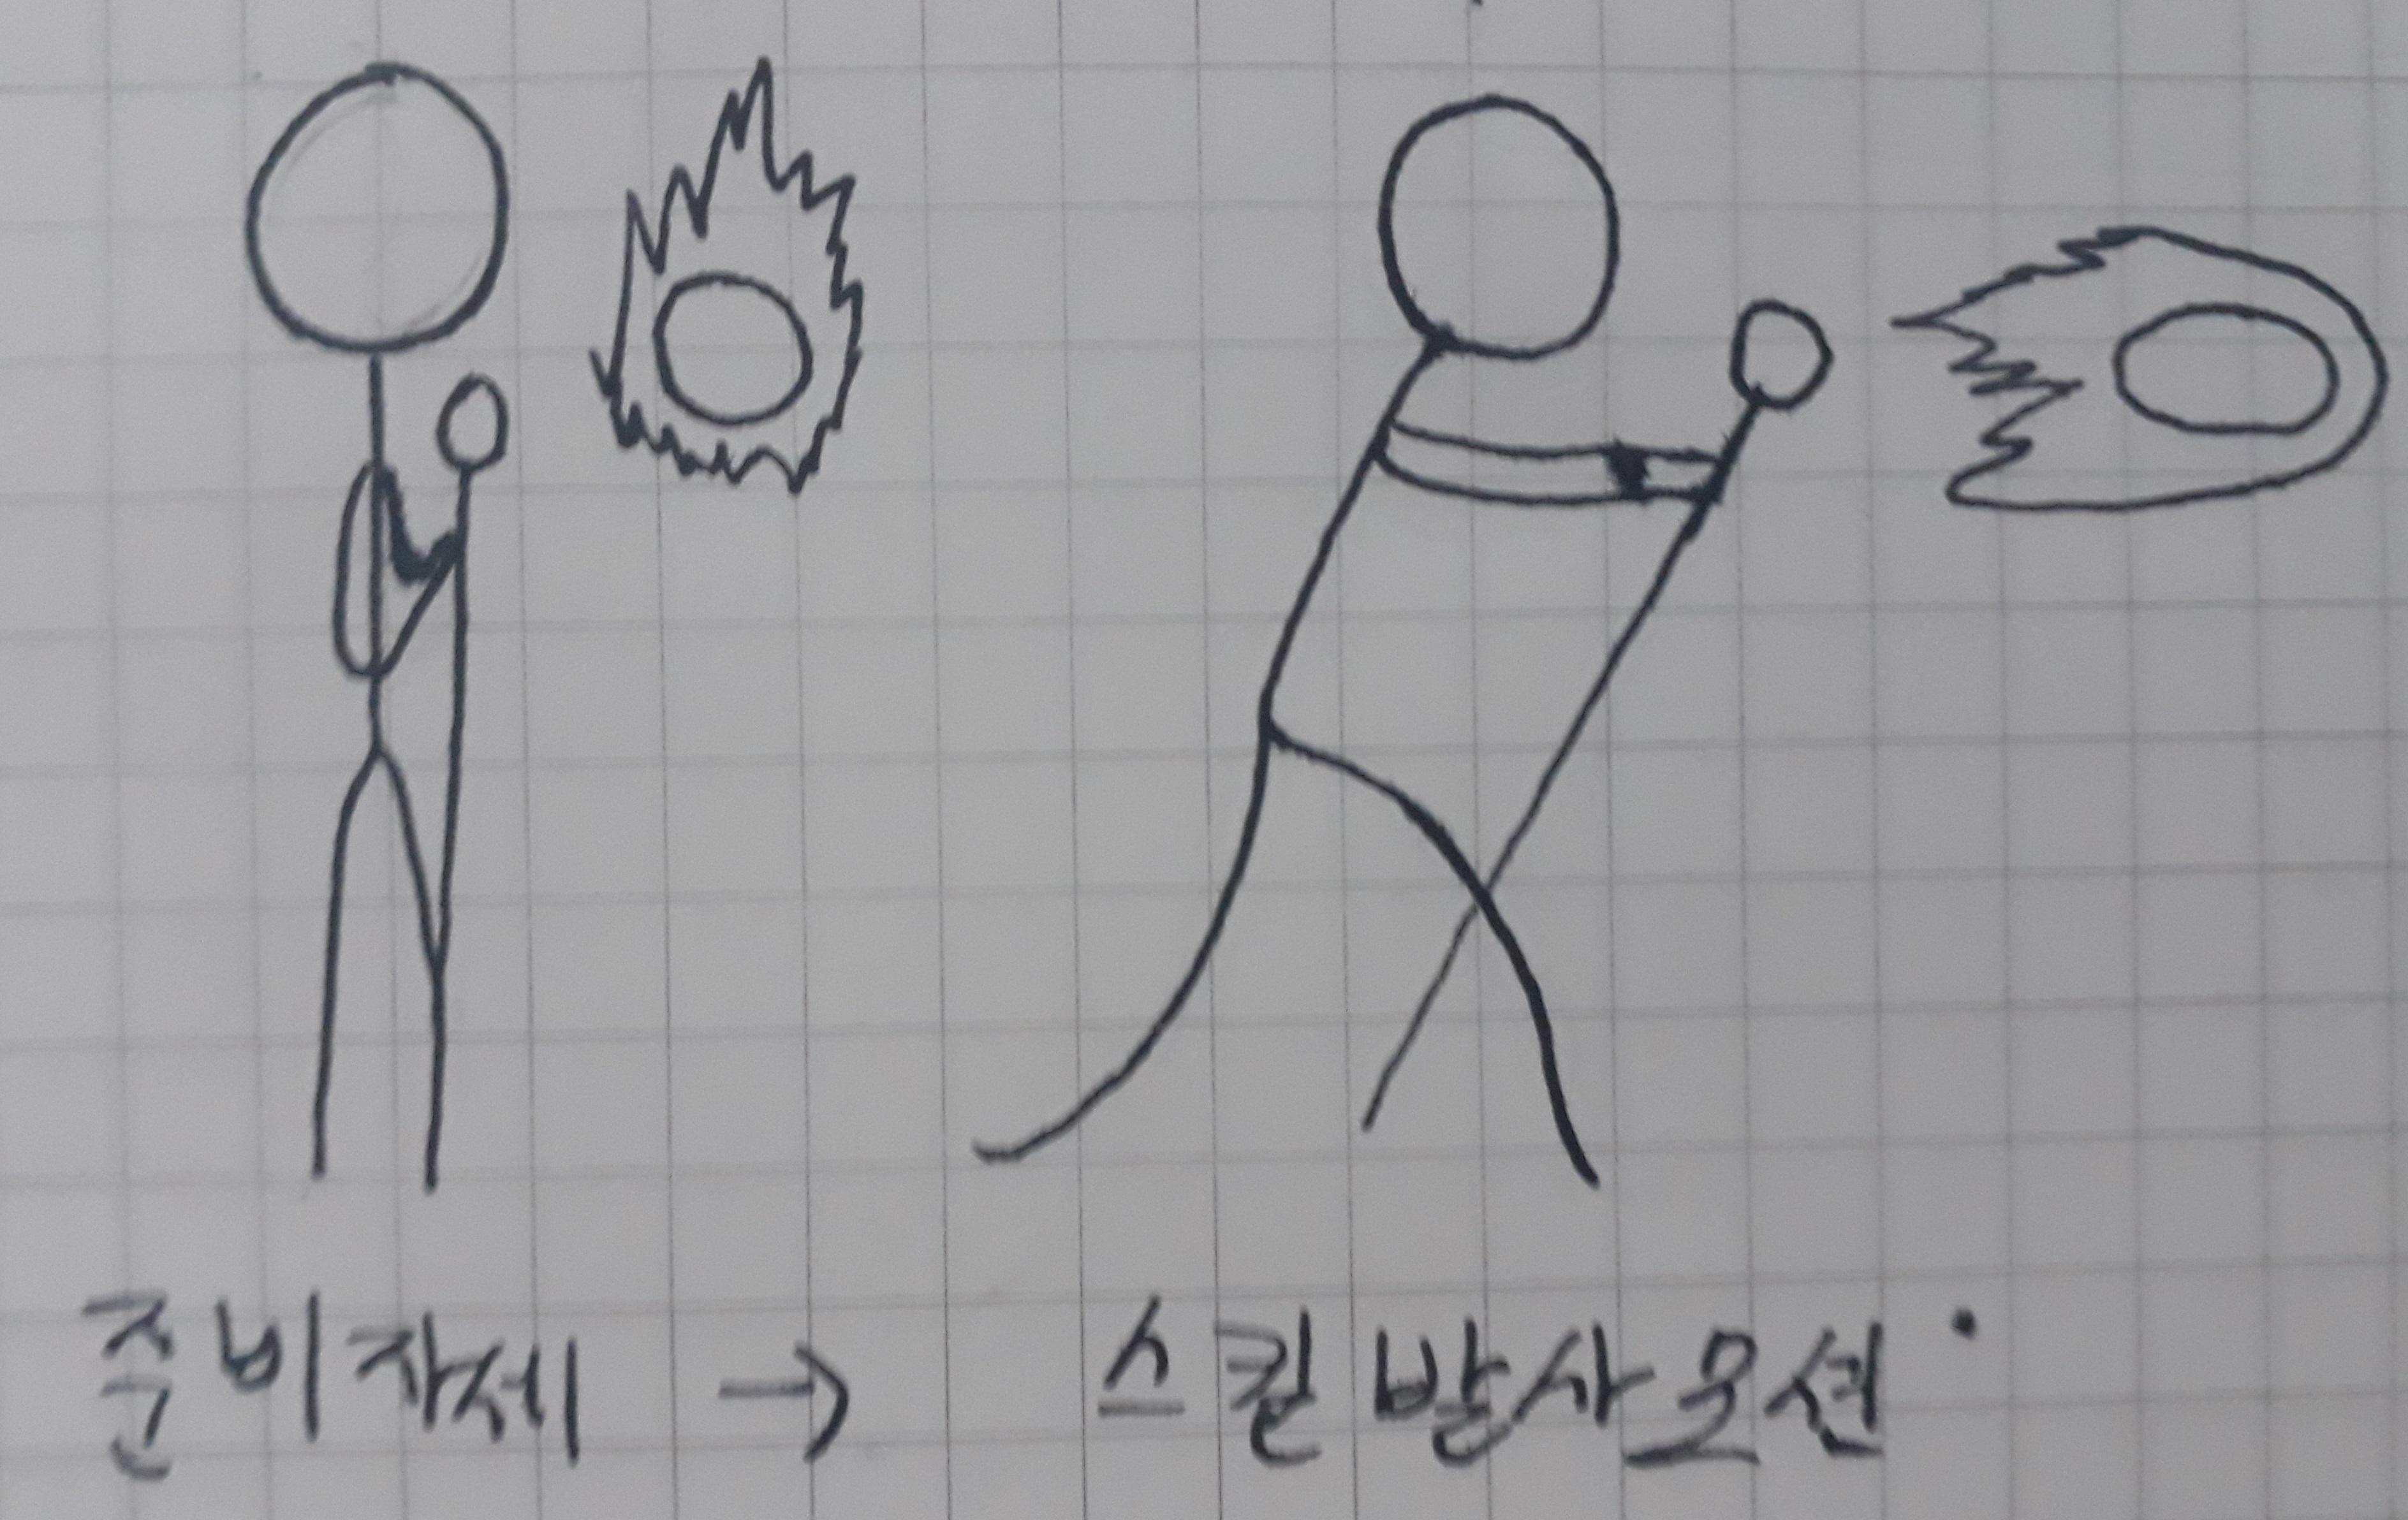 준비자세 → 스킬 발사 모션.